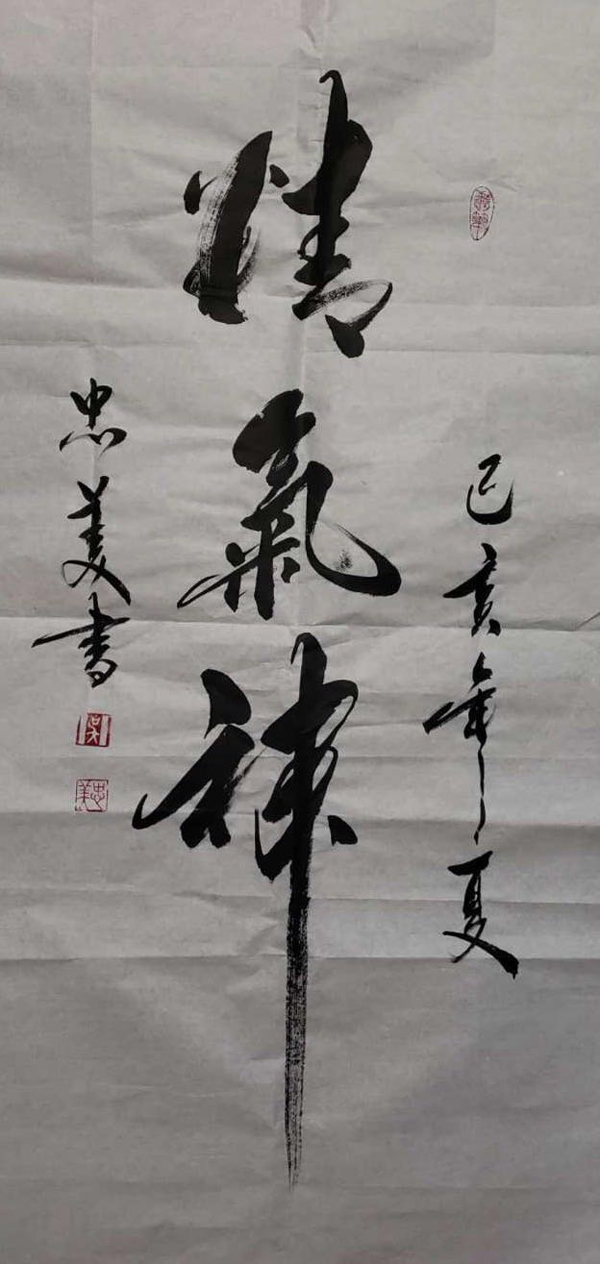 己亥年夏
精氣神
忠美書
吴
忠美